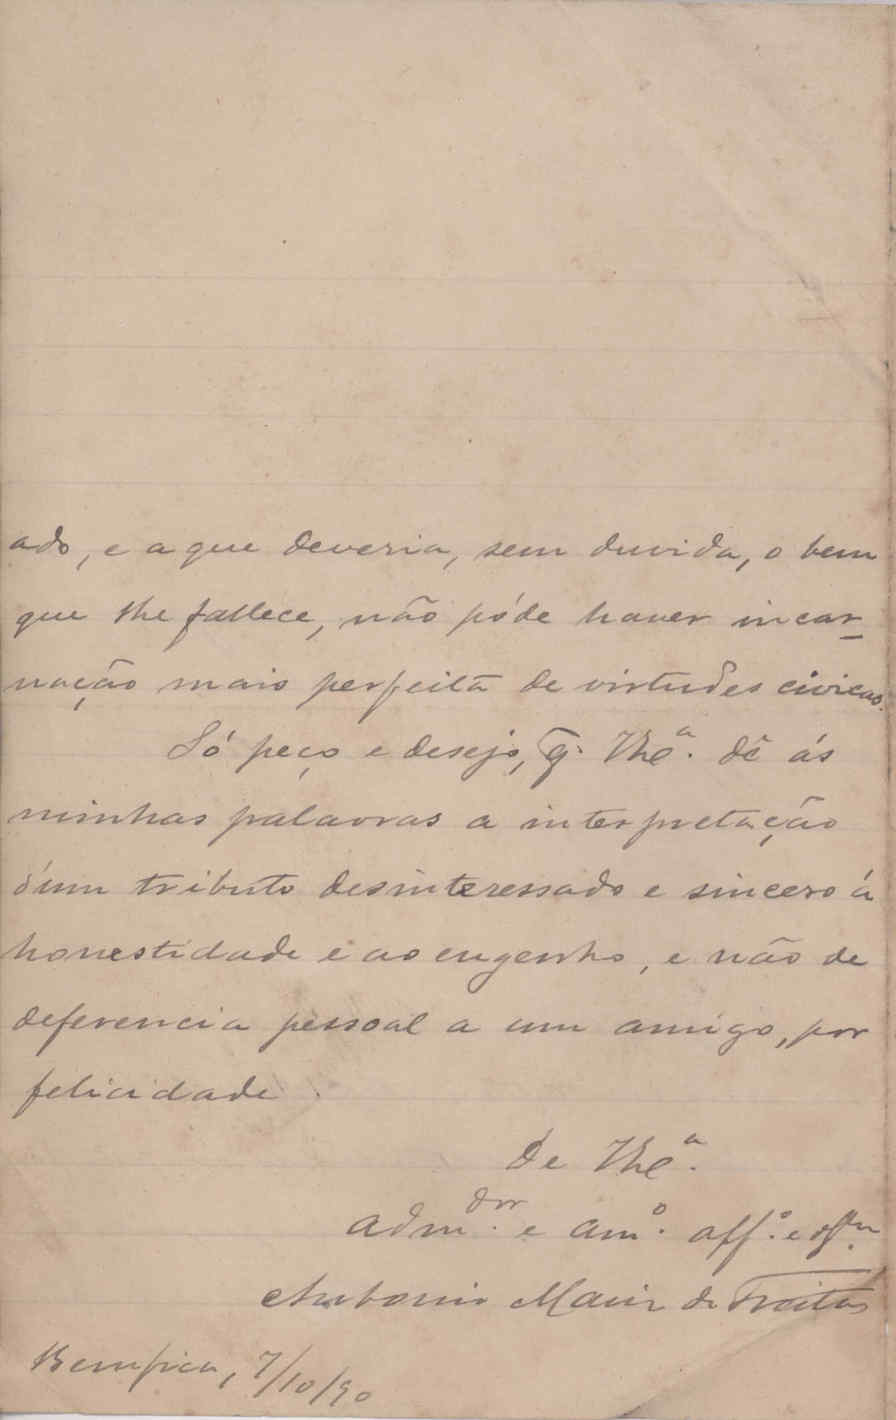 ado, e a que deveria, sem duvida, o bem
que lhe fallece, não póde haver incar-
nação mais perfeita de virtudes civicas.
Só peço e desejo, q. V Ex.ª dê ás
minhas palavras a interpretação
d'um tributo desinteressado e sincero á
honestidade e ao engenho, e não de
deferencia pessoal a um amigo, por
felicidade
De V Ex.ª
adm.dor e am.º aff.º e
Antonio Maria de Freitas
Bemfica, 7/10/90